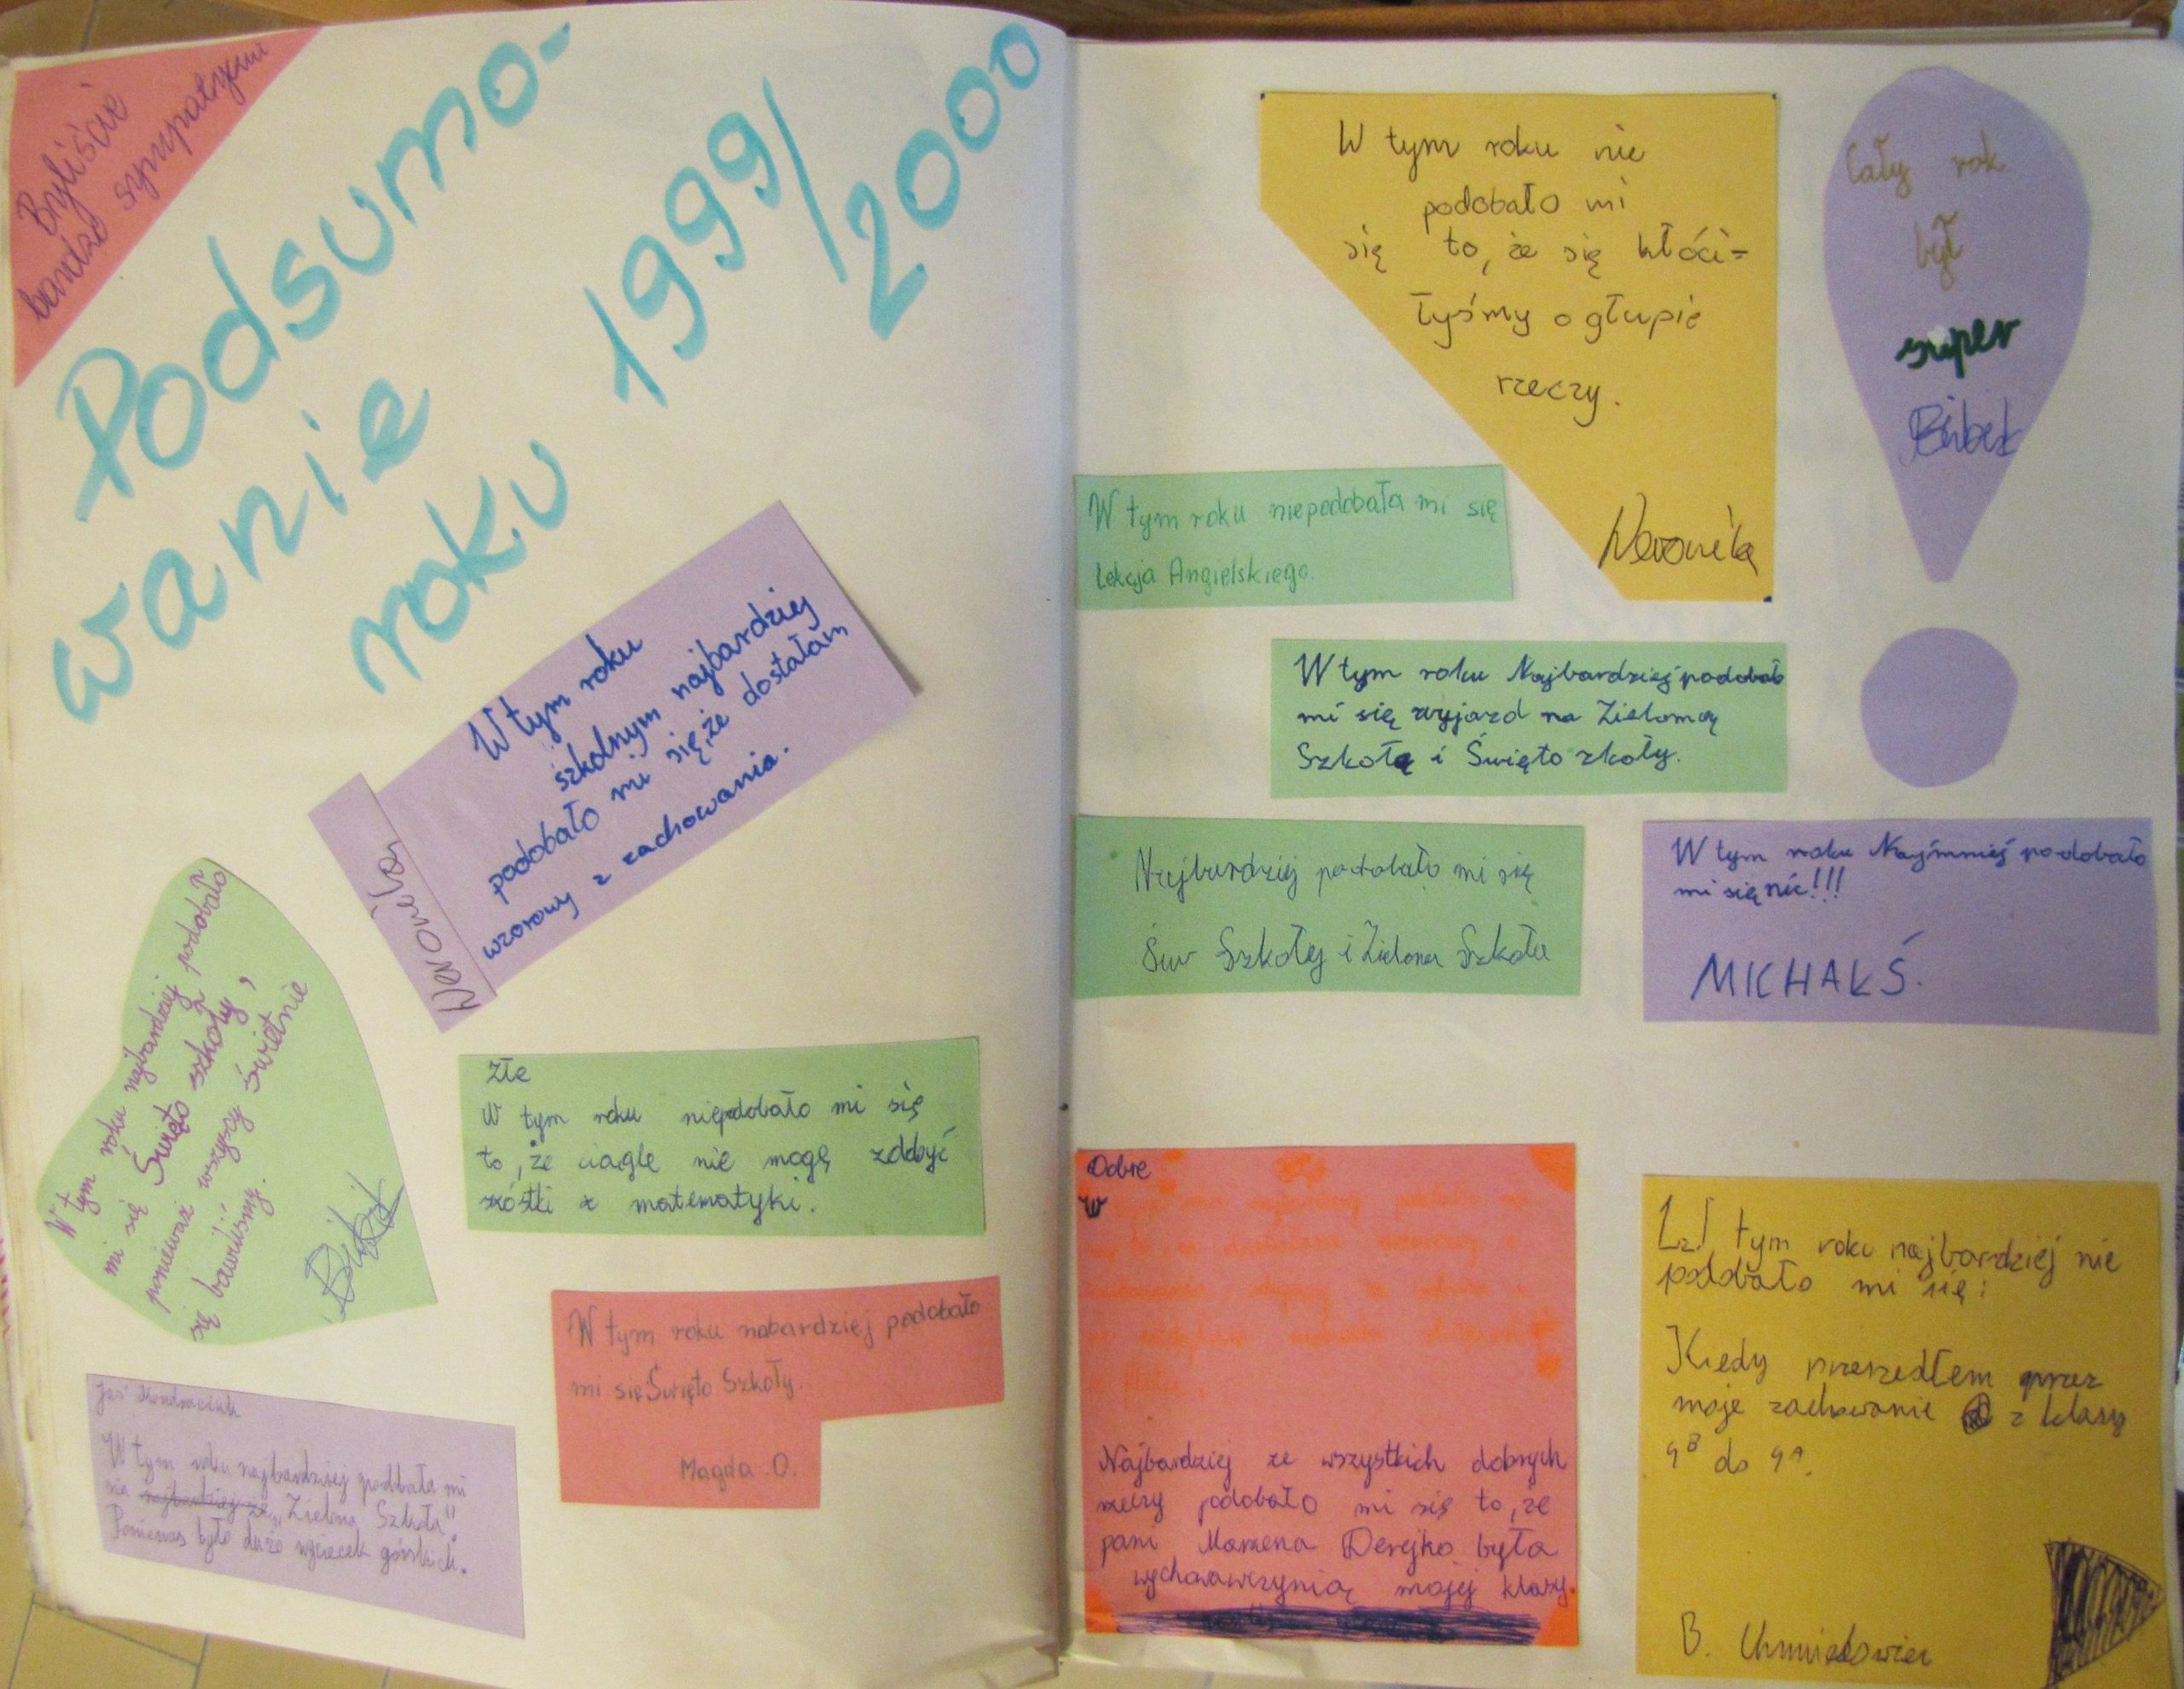 Byliście
bardzo sympatyczni
Podsumo-
wanie
roku 1999/
2000
W tym roku
szkolnym najbardziej
podobało mi się, że dostałam
wzorowy z zachowania.
Weronika
W tym roku najbardziej podobało
mi się Święto szkoły,
ponieważ wszyscy świetnie
się bawiliśmy.
złe
W tym roku niepodobało mi się
to, że ciągle nie mogę zdobyć
szóstki z matematyki.
W tym roku nabardziej podobało
mi się Święto Szkoły.
Magda .O.
Jaś
W tym roku najbardziej podobała mi
się najbardziej że „Zielona Szkoła".
Ponieważ było dużo wycieczek górskich.
W tym roku nie
podobało mi
się to, że się kłóci=
łyśmy o głupie
rzeczy.
Weronika
Cały rok
był
super
W tym roku niepodobała mi się
lekcja Angielskiego.
W tym roku Najbardziej podobał
mi się wyjazd na Zieloną
Szkołę i Święto zkoły.
Najbardziej podobało mi się
Św Szkoły i Zielona Szkoła
W tym roku Najmniej podobało
mi się nic!!!
MICHAŁ Ś.
Dobre
W
Najbardziej ze wszystkich dobrych
rzeczy podobało mi się to, że
pani Marzena Derejko była
wychowawczynią mojej klasy.
W tym roku najbardziej nie
podobało mi się:
Kiedy przeszedłem przez
moje zachowanie z klasy
4B do 4A.
B.